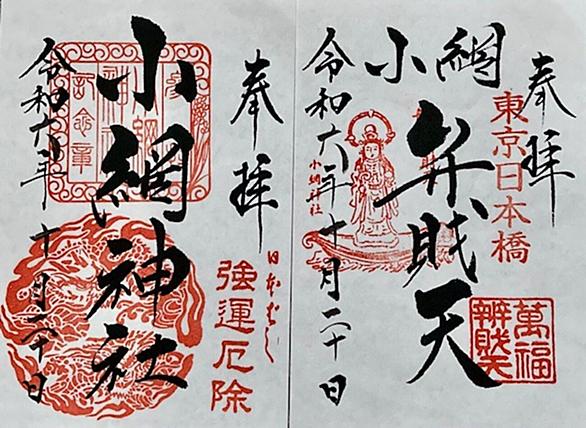 奉拝
東京日本橋
小網
弁財天
萬福
辨財天
小網神社
令和六年十月二十日
奉拝
日本ばし
強運厄除
小網神社
令和六年十月二十日